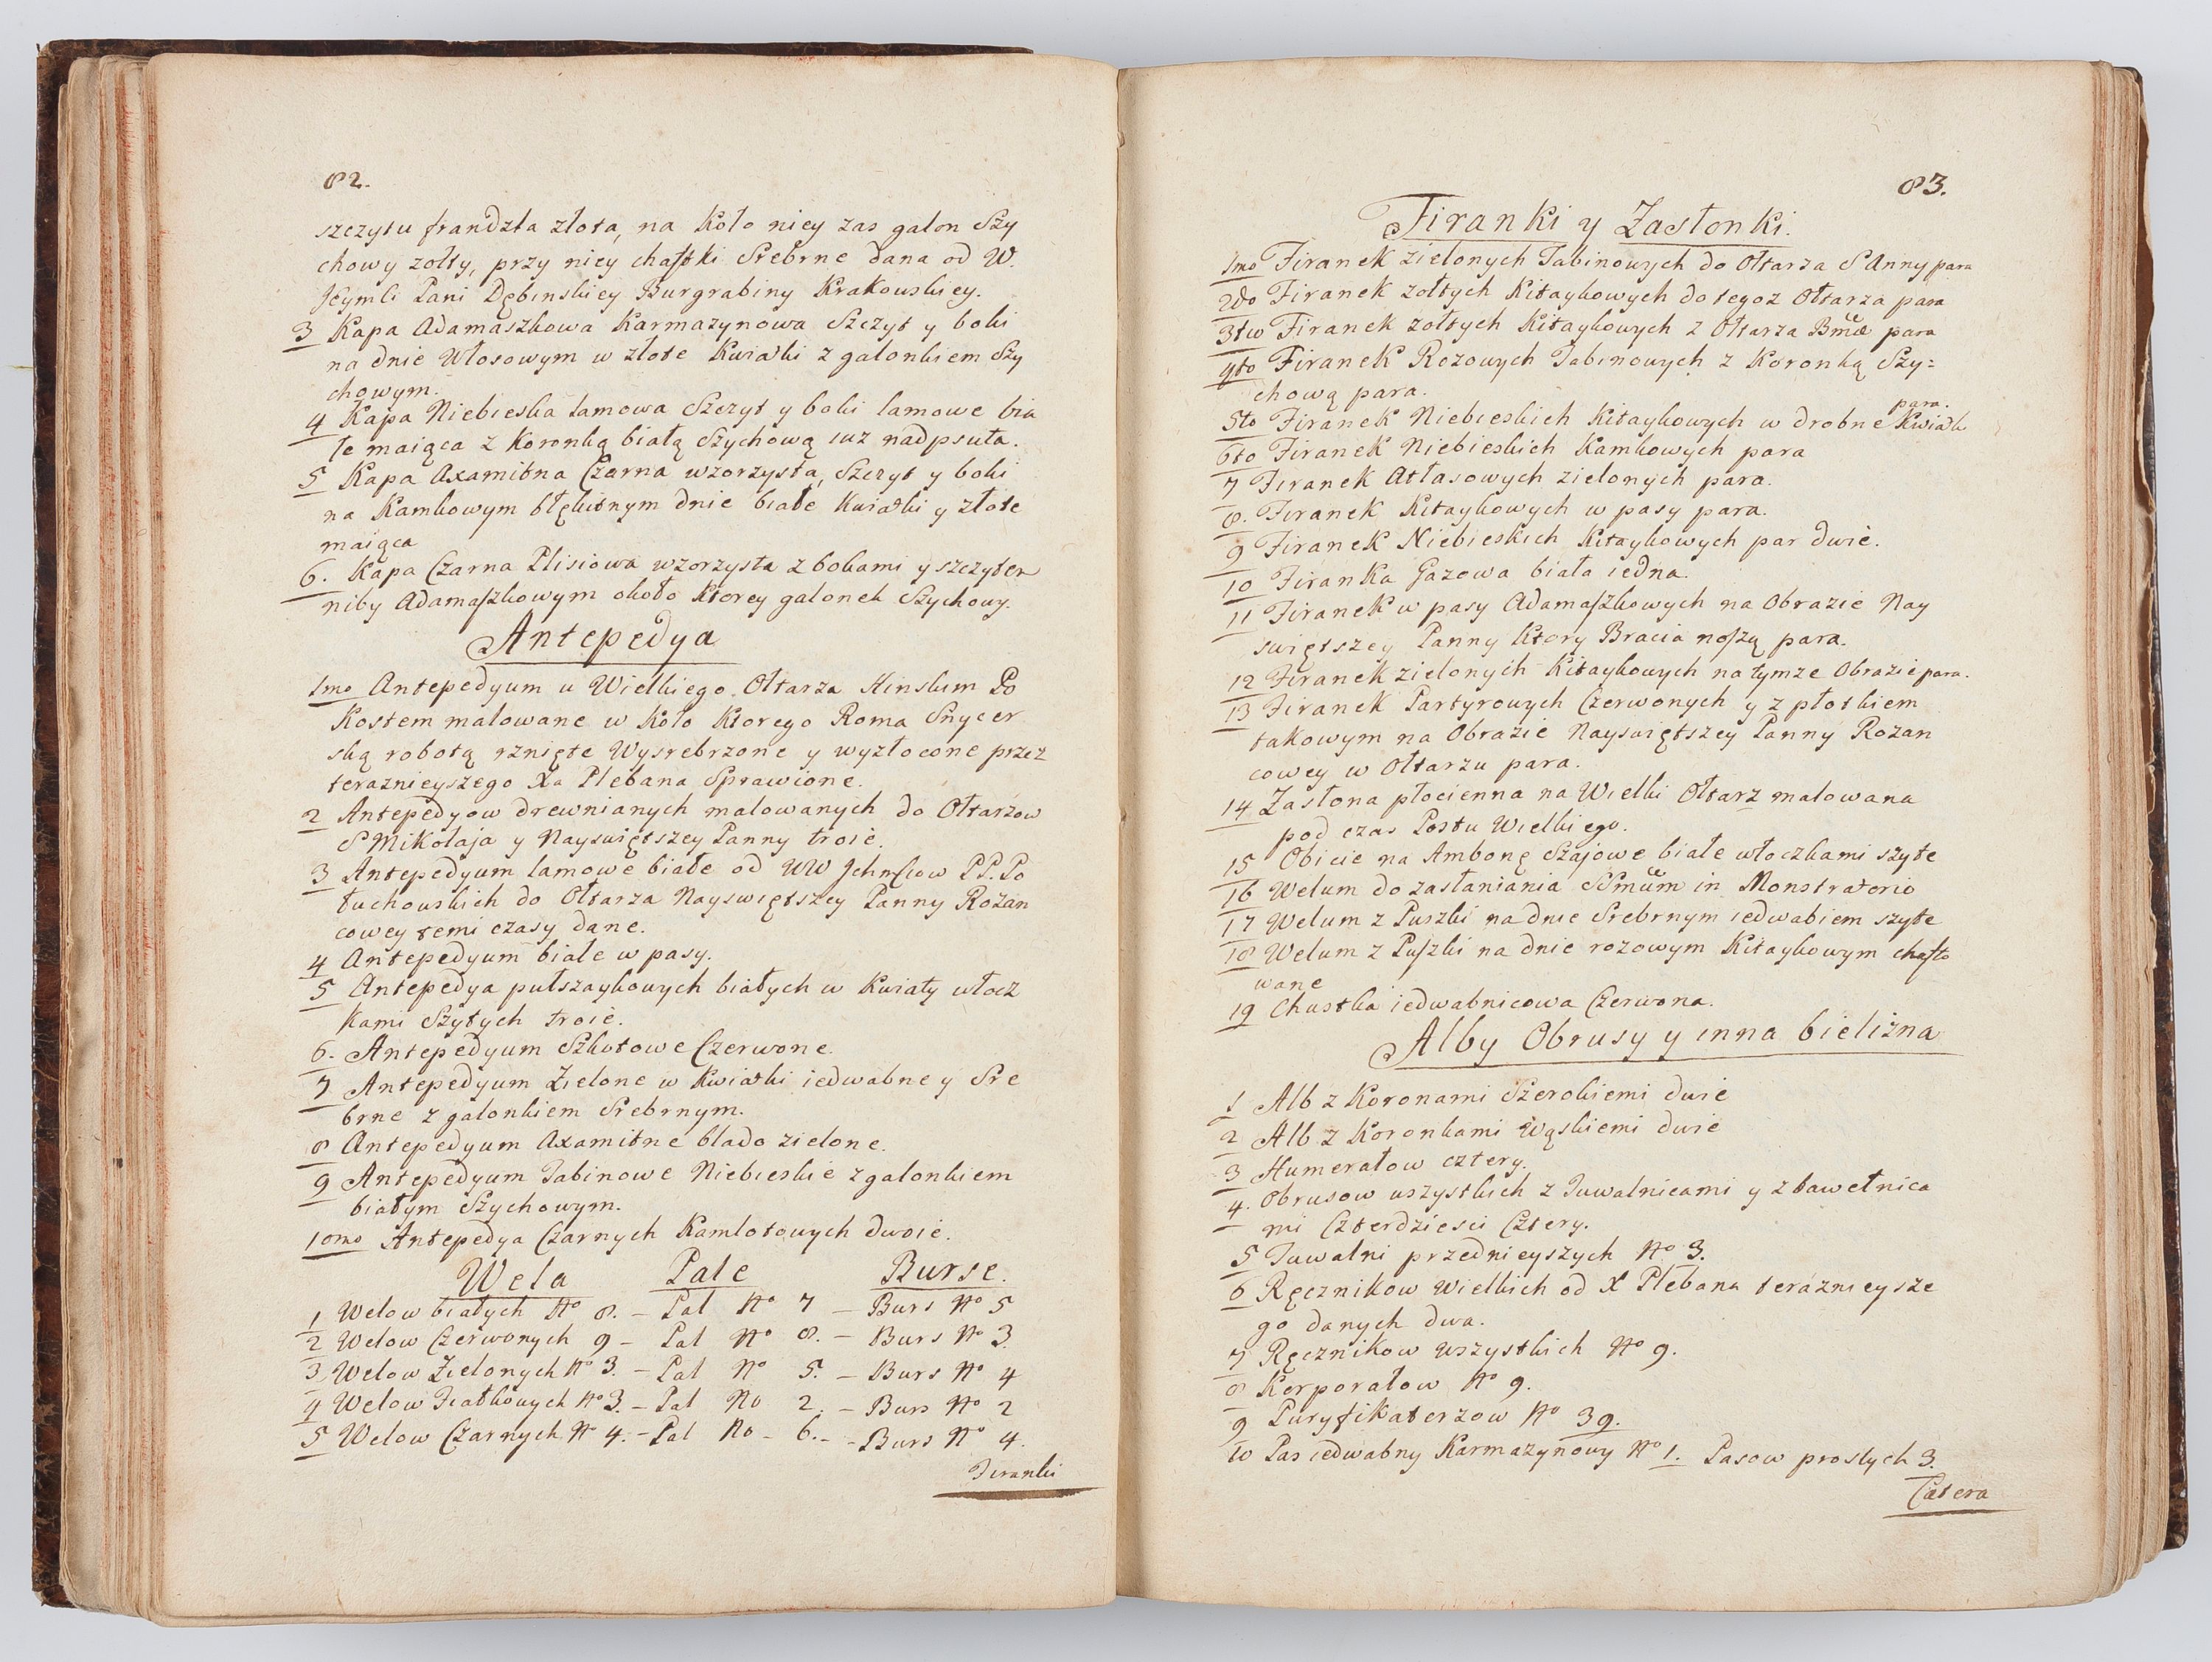 82.
szczytu frandzla złota, na koło niey zas galon Szy
chowy zołty, przy niey chaftki Srebrne dana od W.
Jeymli Pani Dębinskiey Burgrabiny Krakowskiey.
3 Kapa Adamaszkowa Karmazynowa Szczyt y boki
na dnie Włosowym w złote Kwiatki z galonkiem Szy
chowym.
4 Kapa Niebieska lamowa Szczyt y boki lamowe bia
łe maiąca z Koronką białą Szychową iuz nadpsuta.
5 Kapa Axamitna Czarna wzorzysta, Szczyt y boki
na Kamkowym błękitnym dnie białe kwiatki y złote
maiąca
6. Kapa Czarna Plisiowa wzorzysta z bokami y szczytem
niby Adamaszkowym około Ktorey galonek Szychowy.
Antepedya
1mo Antepedyum u Wielkiego Ołtarza Hinskim Po
kostem malowane w koło Ktorego Rama Snycer
ską robotą rznięte Wysrebrzone y wyzłocone przez
teraznieyszego Xa Plebana Sprawione.
2 Antepedyow drewnianych malowanych do Ołtarzow
S Mikołaja y Nayswiętszey Panny troie.
3 Antepedyum lamowe białe od WW Jchmciow PP. Po
tuchowskich do Ołtarza Nayswiętszey Panny Rozan
cowey temi czasy dane.
4 Antepedyum białe w pasy.
5 Antepedya pułszaykowych białych w Kwiaty włocz
kami Szytych troie.
6. Antepedyum Szkotowe Czerwone.
7 Antepedyum Zielone w Kwiatki iedwabne y Sre
brne z galonkiem Srebrnym.
8 Antepedyum Axamitne blado zielone.
9 Antepedyum Tabinowe Niebieskie z galonkiem
białym Szychowym.
10mo Antepedya Czarnych Kamlotowych dwoie.
Wela Pale Burse.
1 Welow białych No 8. – Pal No 7 – Burs No 5
2 Welow Czerwonych 9 – Pal No 8. – Burs No 3.
3 Welow Zielonych No 3. – Pal No 5. – Burs No 4
4 Welow Fiałkowych No 3. – Pal No 2. – Burs No 2
5 Welow Czarnych No 4. – Pal No – 6. – Burs No 4.
Firanki
83.
Firanki y Zasłonki.
1mo Firanek zielonych Tabinowych do Ołtarza S Anny para
2do Firanek zołtych Kitaykowych do tegoz Ołtarza para
3tio Firanek zołtych Kitaykowych z Ołtarza Bmae para
4to Firanek Rozowych Tabinowych z Koronką Szy=
chową para.
para.
5to Firanek Niebieskich Kitaykowych w drobne Kwiatk
6to Firanek Niebieskich Kamkowych para
7 Firanek Atłasowych zielonych para.
8. Firanek Kitaykowych w pasy para.
9 Firanek Niebieskich Kitaykowych par dwie.
10 Firanka Gazowa biała iedna.
11 Firanek w pasy Adamaszkowych na Obrazie Nay
swiętszey Panny Ktory Bracia noszą para.
12 Firanek zielonych Kitaykowych na tymze Obrazie para.
13 Firanek Partyrowych Czerwonych y z płotkiem
takowym na Obrazie Nayswiętszey Panny Rozan
cowey w Ołtarzu para.
14 Zasłona płocienna na Wielki Ołtarz malowana
pod czas Postu Wielkiego.
15 Obicie na Ambonę Szajowe białe włoczkami szyte
16 Welum do zasłaniania SSmum in Monstratorio
17 Welum z Puszki na dnie Srebrnym iedwabiem szyte
18 Welum z Puszki na dnie rozowym Kitaykowym chafto
wane
19 Chustka iedwabnicowa Czerwona.
Alby Obrusy y inna bielizna
1 Alb z Koronami Szerokiemi dwie
2 Alb z Koronkami Wąskiemi dwie
3 Humerałow cztery.
4. Obrusow wszystkich z Tuwalnicami y z bawełnica
mi Czterdziesci Cztery.
5 Tuwalni przednieyszych No 3.
6 Ręcznikow Wielkich od X Plebana teraznieysze
go danych dwa.
7 Ręcznikow wszystkich No 9.
8 Korporałow No 9.
9 Puryfikaterzow No 39.
10 Pas iedwabny Karmazynowy No 1. Pasow prostych 3.
Catera